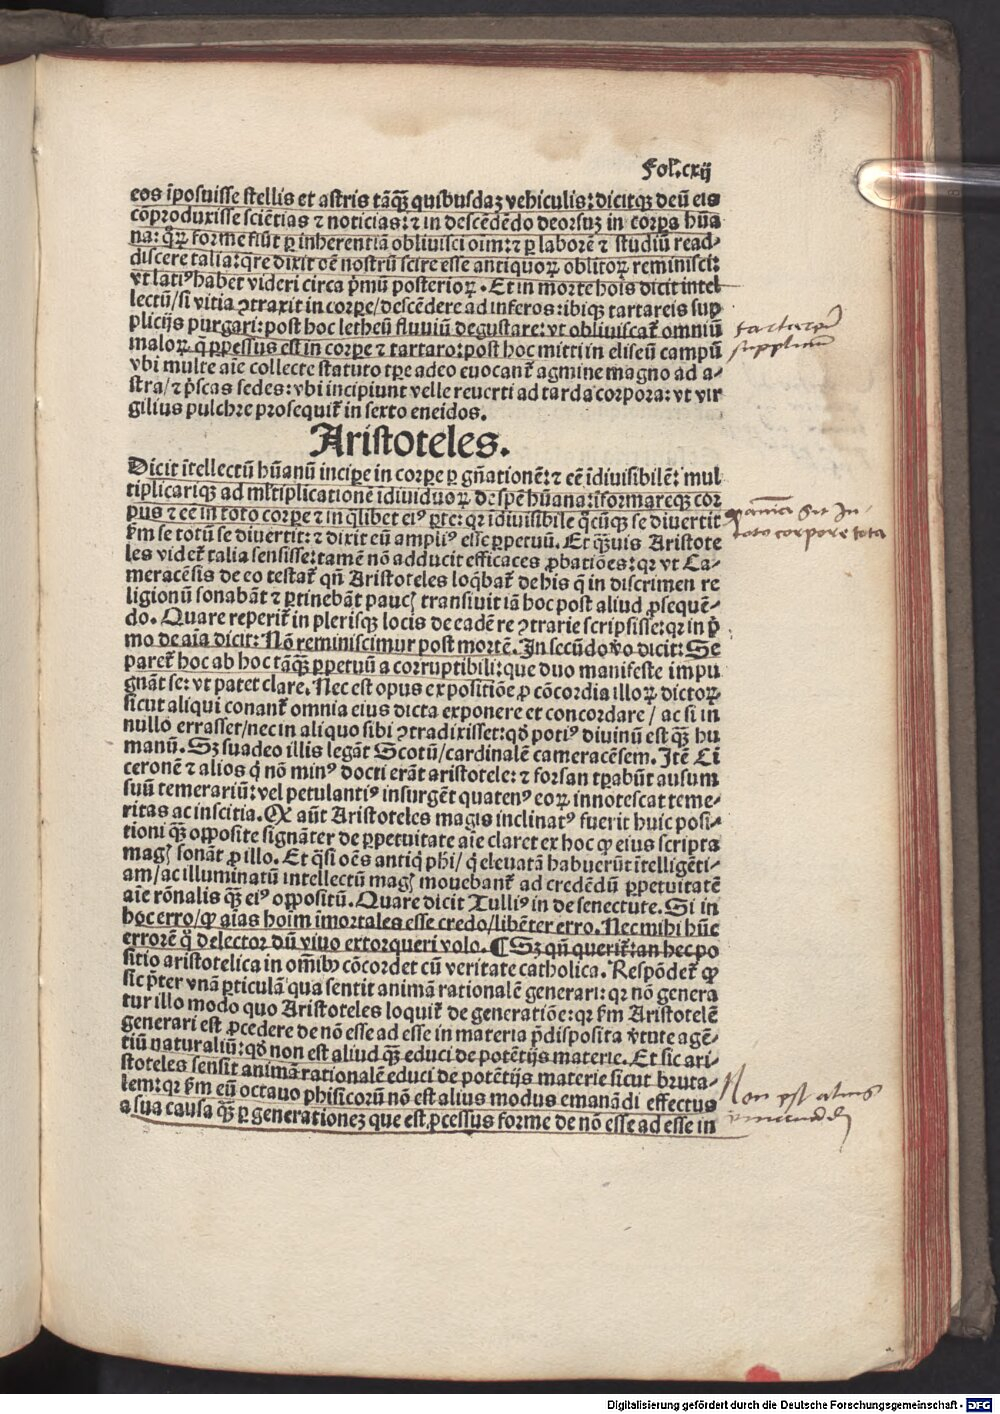 Fol. cxij
eos īposuisse stellis et astris tāq̄ȝ quibusdaȝ vehiculis: dicitqȝ deū eis
cōproduxisse sciētias ⁊ noticias: ⁊ in descēdēdo deorsuȝ in corpa hūa
na: q̄ꝝ forme fiūt ꝑ inherentiā obliuisci oīm: ⁊ ꝑ laborē ⁊ studiū read⸗
discere talia: qre dixit oē nostrū scire esse antiquoꝝ oblitoꝝ reminisci:
vt latiꝰ habet videri circa pͥmū posterioꝝ. Et in morte hoīs dicit intel
lectū / si vitia ꝯtraxit in corpe / descēdere ad inferos: ibiqȝ tartareis sup
plicijs purgari: post hoc letheū fluuiū degustare: vt obliuiscat̄ omniū
maloꝝ q̄ ꝑpessus est in corpe ⁊ tartaro: post hoc mitti in eliseū campū
vbi multe aīe collecte statuto tꝑe a deo euocant̄ agmine magno ad a⸗
stra / ⁊ pͥscas sedes: vbi incipiunt velle reuerti ad tarda corpora: vt vir
gilius pulchre prosequit̄ in sexto eneidos.
Aristoteles.
Dicit ītellectū hūanū incipe in corpe ꝑ gn̄ationē: ⁊ eē īdiuisibilē: mul
tiplicariqȝ ad ml̄tiplicationē īdiuiduoꝝ de spē hūana: īformareqȝ cor
pus ⁊ eē in toto corpe ⁊ in ql̄ibet eiꝰ ꝑte: qꝛ īdiuisibile q̄cūqȝ se diuertit
km̄ se totū se diuertit: ⁊ dixit eū ampliꝰ esse ꝑpetuū. Et q̄ȝuis Aristote
les videt̄ talia sensisse: tamē nō adducit efficaces ꝓbatiōes: qꝛ vt Ca⸗
meracēsis de eo testat̄ qn̄ Aristoteles loq̄bat̄ de his q̄ in discrimen re
ligionū sonabāt ⁊ ꝑtinebāt paucꝭ transiuit iā hoc post aliud ꝓsequē⸗
do. Quare reperit̄ in plerisqȝ locis de eadē re ꝯtrarie scripsisse: qꝛ in pͥ
mo de aīa dicit: Nō reminiscimur post mortē. In secūdo v̊o dicit: Se
paret̄ hoc ab hoc tāq̄ȝ ꝑpetuū a corruptibili: que duo manifeste impu
gnāt se: vt patet clare. Nec est opus expositiōe ꝓ cōcordia illoꝝ dictoꝝ
sicut aliqui conant̄ omnia eius dicta exponere et concordare / ac si in
nullo errasset / nec in aliquo sibi ꝯtradixisset: qd̊ potiꝰ diuinū est q̄ȝ hu
manū. Sȝ suadeo illis legāt Scotū / cardinalē cameracēsem. Itē Ci
ceronē ⁊ alios qͥ nō minꝰ docti erāt aristotele: ⁊ forsan tꝑabūt ausum
suū temerariū: vel petulantiꝰ insurgēt quatenꝰ eoꝝ innotescat teme⸗
ritas ac inscitia. Ꝙ aūt Aristoteles magis inclinatꝰ fuerit huic posi⸗
tioni q̄ȝ opposite signāter de ꝑpetuitate aīe claret ex hoc ꝙ eius scripta
magꝭ sonāt ꝓ illo. Et q̄si oēs antiqͥ phi / qͥ eleuatā habuerūt ītelligēti⸗
am / ac illuminatū intellectū magꝭ mouebant̄ ad credēdū ꝑpetuitatē
aīe rōnalis q̄ȝ eiꝰ oppositū. Quare dicit Tulliꝰ in de senectute. Si in
hoc erro / ꝙ aīas hoīm īmortales esse credo / libēter erro. Nec mihi hūc
errorē q̊ delector dū viuo extorqueri volo. ¶ Sȝ qn̄ querit̄: an hec po
sitio aristotelica in om̄ibꝰ cōcordet cū veritate catholica. Respōdet̄ ꝙ
sic pͥter vnā ꝑticulā qua sentit animā rationalē generari: qꝛ nō genera
tur illo modo quo Aristoteles loquit̄ de generatiōe: qꝛ km̄ Aristotelē
generari est ꝓcedere de nō esse ad esse in materia p̄disposita v̄tute agē⸗
tiū naturaliū: qd̊ non est aliud q̄ȝ educi de potētijs materie. Et sic ari⸗
stoteles sensit animā rationalē educi de potētijs materie sicut bruta⸗
lem: qꝛ km̄ eū octauo phisicorū nō est alius modus emanādi effectus
a sua causa q̄ȝ ꝑ generationeȝ que est ꝓcessus forme de nō esse ad esse in
supplicia
anima sit in
toto corpore tota
Non est alius
Digitalisierung gefördert durch die Deutsche Forschungsgemeinschaft - DFG